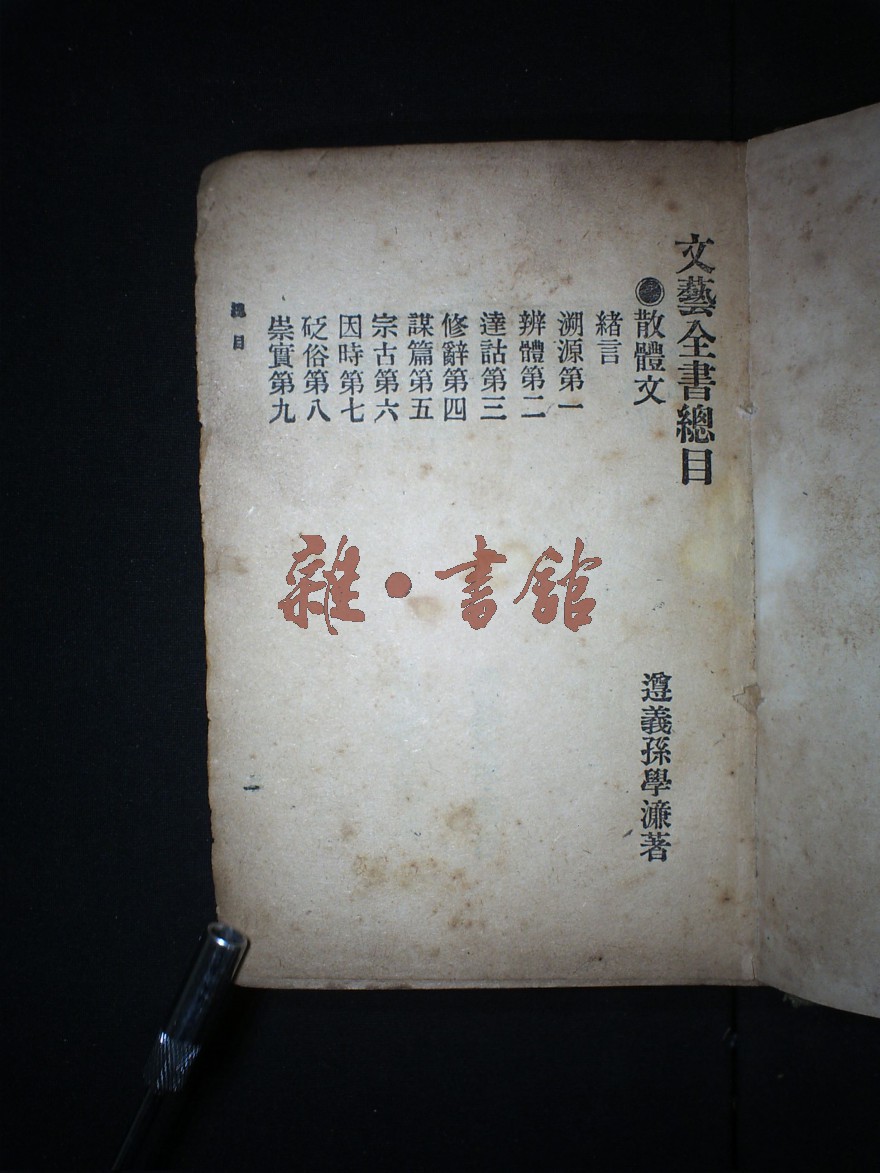 文藝全書總目
◉散體文
遵義孫學濂著
緒言
溯源第一
辨體第二
達詁第三
修辭第四
謀篇第五
宗古第六
因時第七
砭俗第八
崇實第九
總目
一
雜·書館